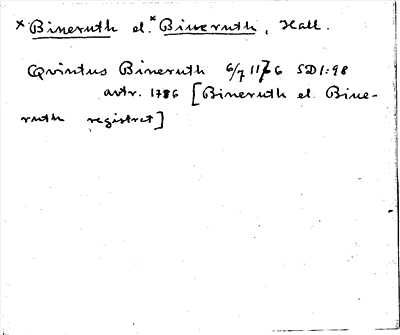 × Bineruth el. × Biueruth, Hall.
Qvintus Bineruth 6/7 1176 SD1:98
avtr. 1786 [Bineruth el. Biue-
ruth registret]